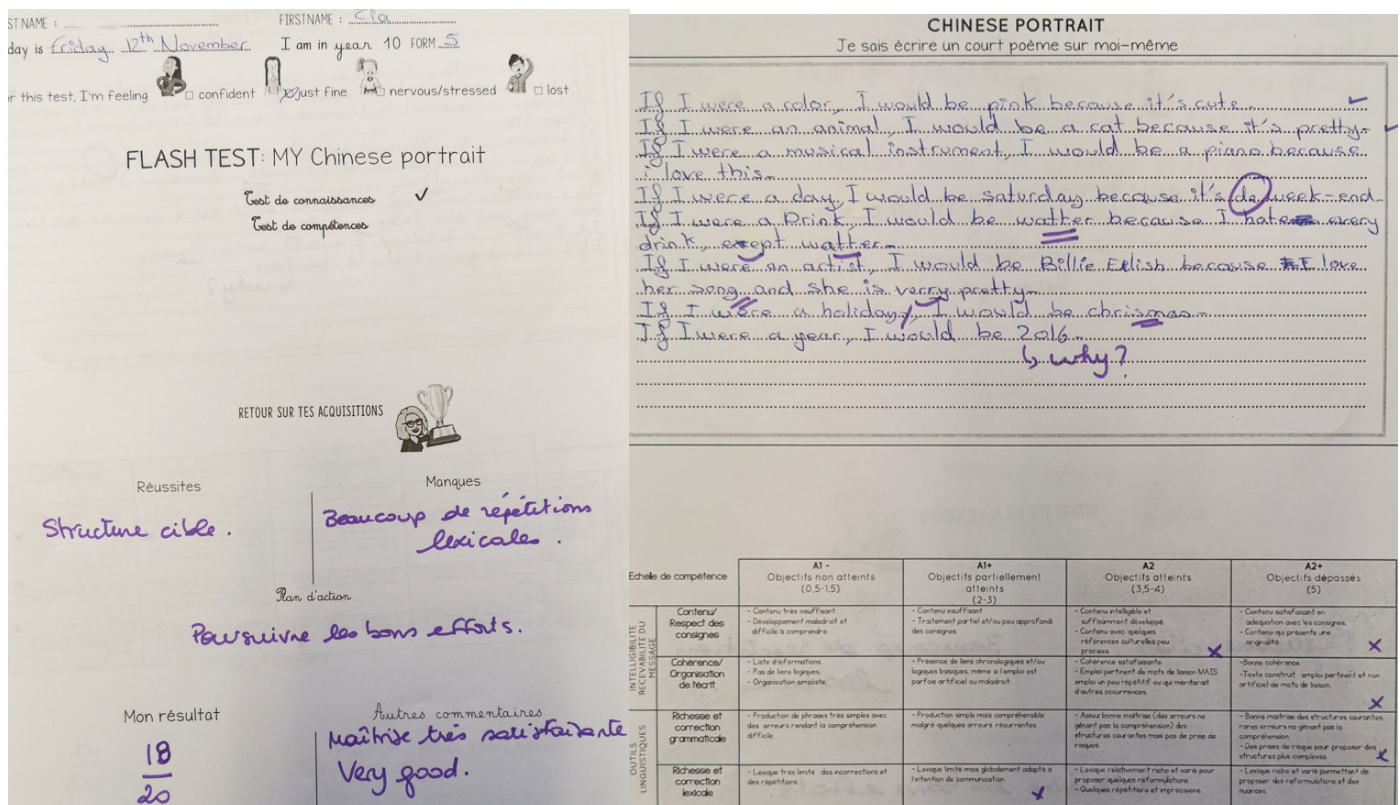 ST NAME :
FIRSTNAME : Cia
day is Friday 12th November
I am in year 10 FORM 5
r this test, I'm feeling
confident
just fine
nervous/stressed
lost
FLASH TEST: MY Chinese portrait
Test de connaissances ✓
Test de compétences
RETOUR SUR TES ACQUISITIONS
Réussites
Structure cible.
Manques
Beaucoup de répétitions
lexicales.
Plan d'action
Poursuivre les bons efforts.
Mon résultat
18
20
Autres commentaires
Maîtrise très satisfaisante
Very good.
CHINESE PORTRAIT
Je sais écrire un court poème sur moi-même
If I were a color, I would be pink because it's cute.
If I were an animal, I would be a cat because it's pretty.
If I were a musical instrument, I would be a piano because
i love this.
If I were a day, I would be saturday because it's de week-end.
If I were a Drink, I would be wather because I hate every
drink, exept wather.
If I were an artist, I would be Billie Eilish because I love
her song and she is verry pretty.
If I were a holiday, I would be chrismas.
If I were a year, I would be 2016.
↳ why?
Echelle de compétence
A1 -
Objectifs non atteints
(0,5-1,5)
A1+
Objectifs partiellement
atteints
(2-3)
A2
Objectifs atteints
(3,5-4)
A2+
Objectifs dépassés
(5)
INTELLIGIBILITE
RECEVABILITE DU
MESSAGE
Contenu/
Respect des
consignes
- Contenu très insuffisant.
- Développement maladroit et
difficile à comprendre.
- Contenu insuffisant
- Traitement partiel et/ou peu approfondi
des consignes
- Contenu intelligible et
suffisamment développé.
- Contenu avec quelques
références culturelles peu
précises.
X
- Contenu satisfaisant en
adéquation avec les consignes.
- Contenu qui présente une
originalité.
X
Cohérence/
Organisation
de l'écrit
- Liste d'informations
- Pas de liens logiques.
- Organisation simpliste.
- Présence de liens chronologiques et/ou
logiques basiques, même si l'emploi est
parfois artificiel ou maladroit.
- Cohérence satisfaisante.
- Emploi pertinent de mots de liaison MAIS
emploi un peu répétitif ou qui mériterait
d'autres occurrences.
- Bonne cohérence
- Texte construit : emploi pertinent et non
artificiel de mots de liaison.
X
OUTILS
LINGUISTIQUES
Richesse et
correction
grammaticale
- Production de phrases très simples avec
des erreurs rendant la compréhension
difficile.
- Production simple mais compréhensible
malgré quelques erreurs récurrentes.
- Assez bonne maîtrise (des erreurs ne
gênant pas la compréhension) des
structures courantes mais pas de prise de
risques.
- Bonne maîtrise des structures courantes,
rares erreurs ne gênant pas la
compréhension.
- Des prises de risque pour proposer des
structures plus complexes.
X
Richesse et
correction
lexicale
- Lexique très limité : des incorrections et
des répétitions.
- Lexique limité mais globalement adapté à
l'intention de communication.
X
- Lexique relativement riche et varié pour
proposer quelques reformulations.
- Quelques répétitions et imprécisions.
- Lexique riche et varié permettant de
proposer des reformulations et des
nuances.